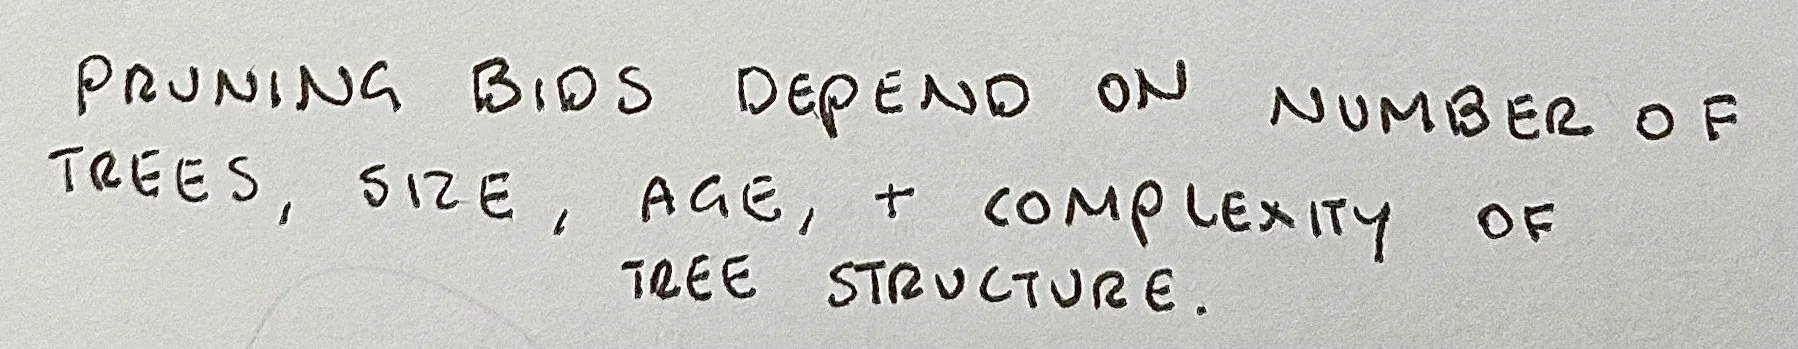 PRUNING BIDS DEPEND ON NUMBER OF
TREES, SIZE, AGE, + COMPLEXITY OF
TREE STRUCTURE.